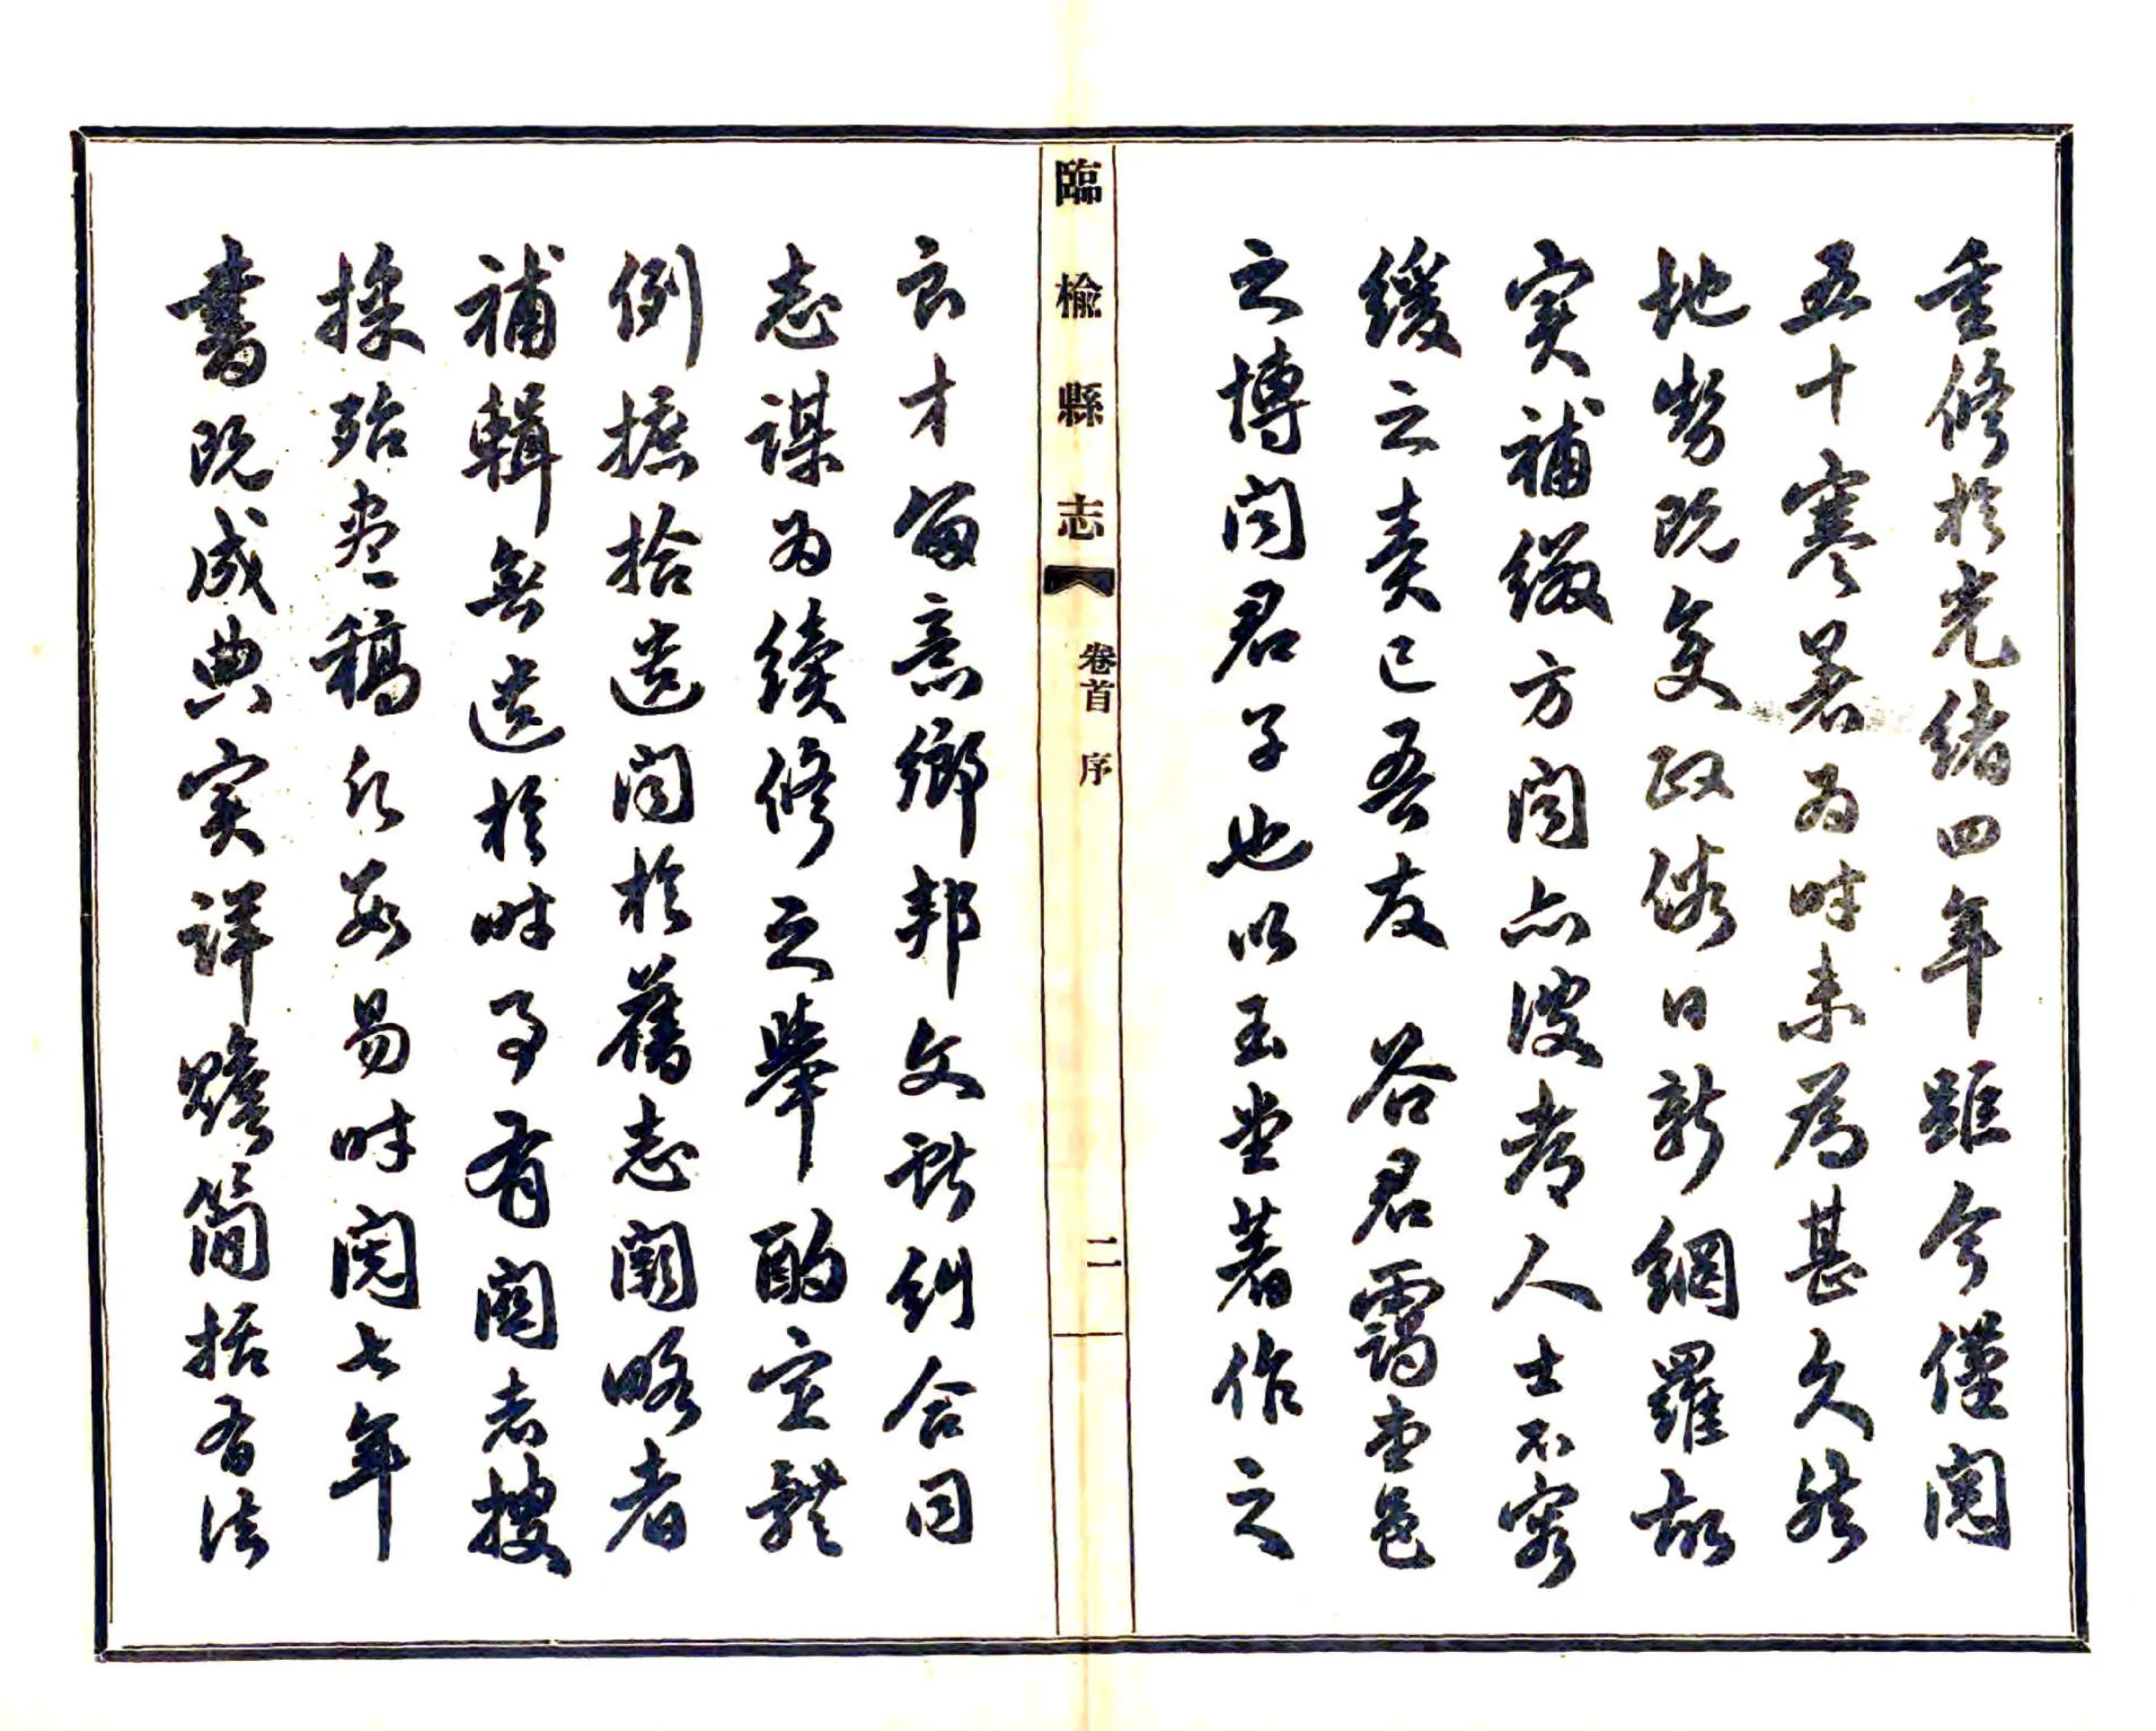 重修於光緒四年距今僅閱
五十寒暑為時未為甚久然
地勢既變政俗日新網羅故
實補綴方聞亦考人士不容
緩之責已吾友 谷君靄堂邑
之博聞君子也以玉堂著作之
臨榆縣志 卷首 序 二
良才留意鄉邦文獻糾合同
志謀為續修之舉酌定體
例摭拾遺聞於舊志闕略者
補輯無遺於時事有關者搜
採殆盡稿凡數易時閱七年
書既成典實詳贍簡括有法